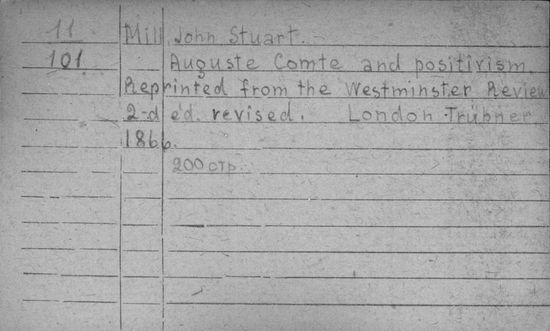 11 Mill John Stuart.
101 Auguste Comte and positivism.
Reprinted from the Westminster Review
2-d ed. revised. London Trübner
1866.
200 стр.